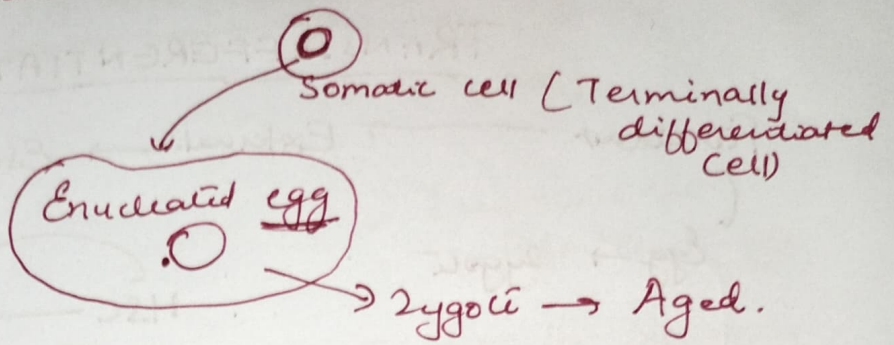 Somatic cell (Terminally
differentiated
Cell)
Enucleated egg
Zygote → Aged.